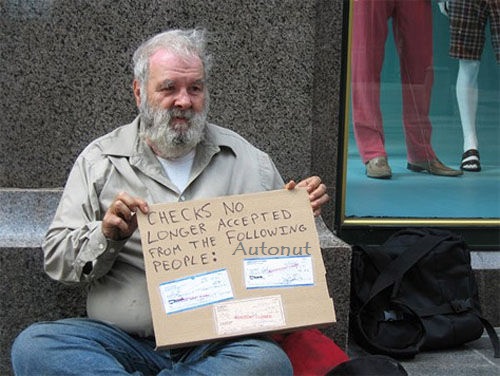 CHECKS NO
LONGER ACCEPTED
FROM THE FOLLOWING
PEOPLE:
Autonut